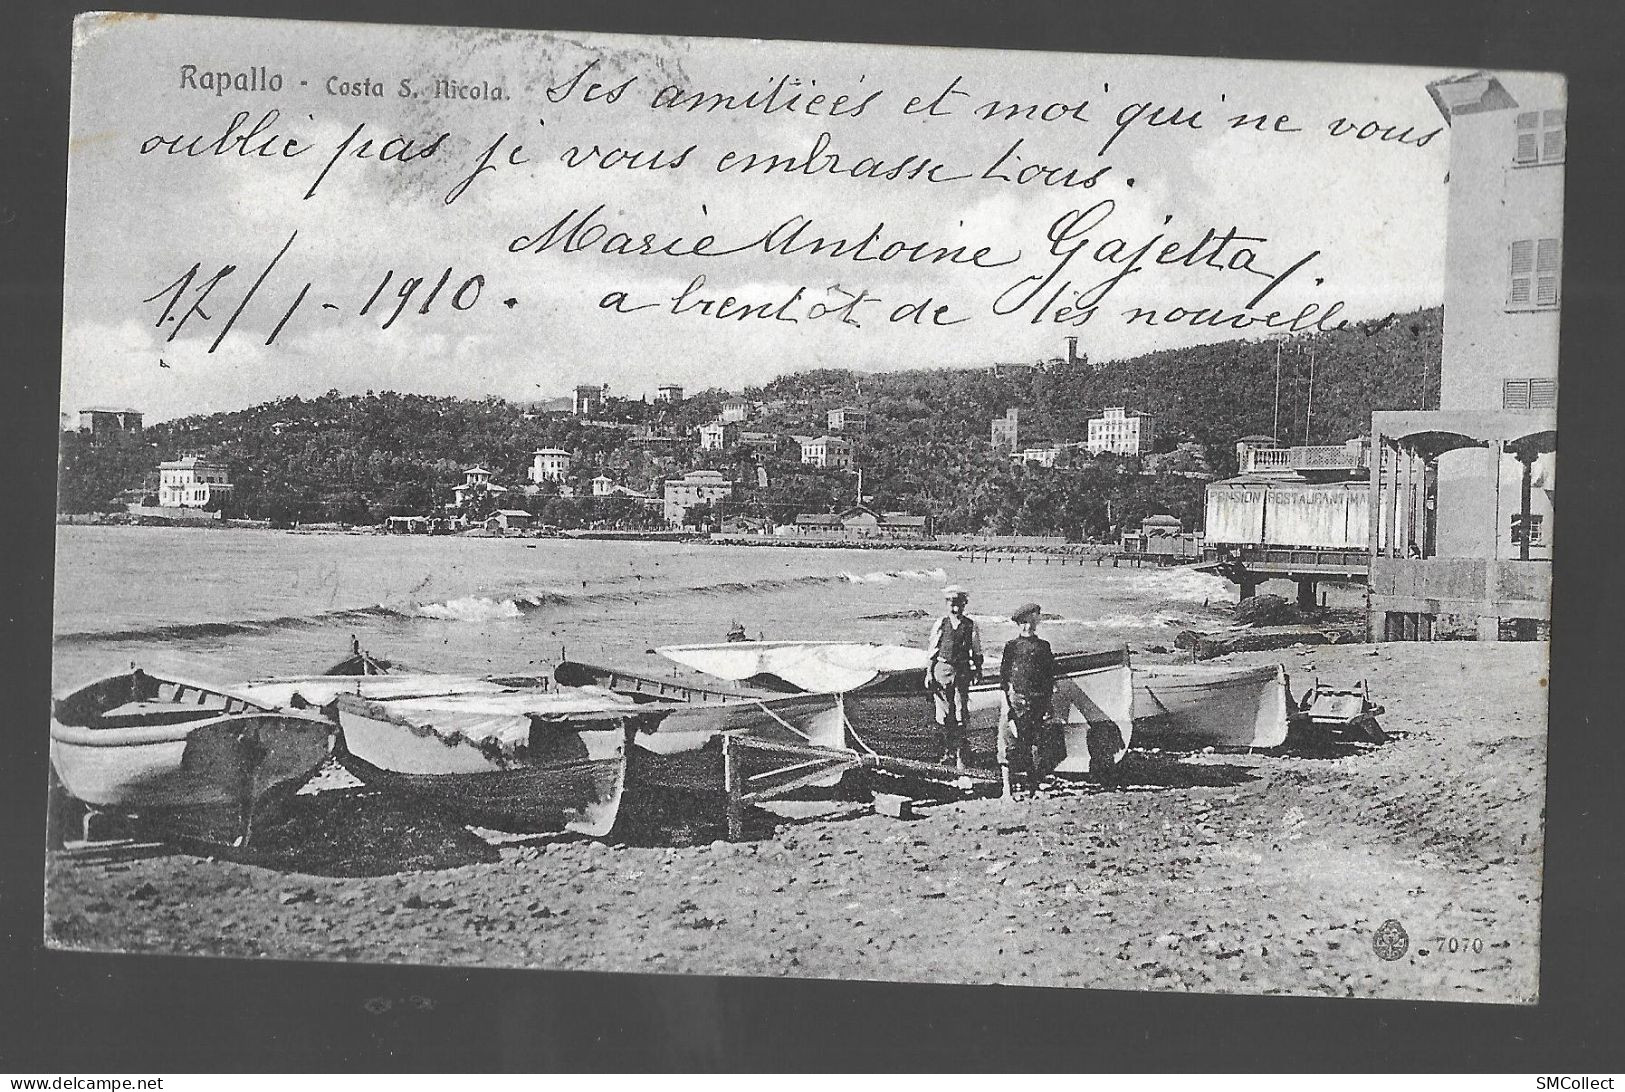 Rapallo - Costa S. Nicola.
Ses amitiéés et moi qui ne vous
oublie pas je vous embrasse tous.
Marie Antoine Gajetta/.
17/1-1910.
a bientôt de tes nouvelles.
PENSION RESTAURANT MA
7070
SMCollect